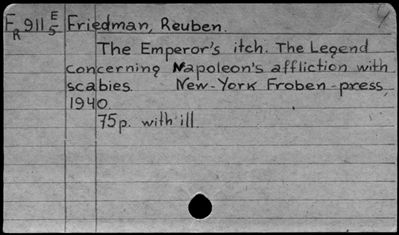 F 911 E Friedman, Reuben.
R 5
The Emperor's itch. The Legend
concerning Napoleon's affliction with
scabies. New-York Froben-press
1940.
75p. with ill.